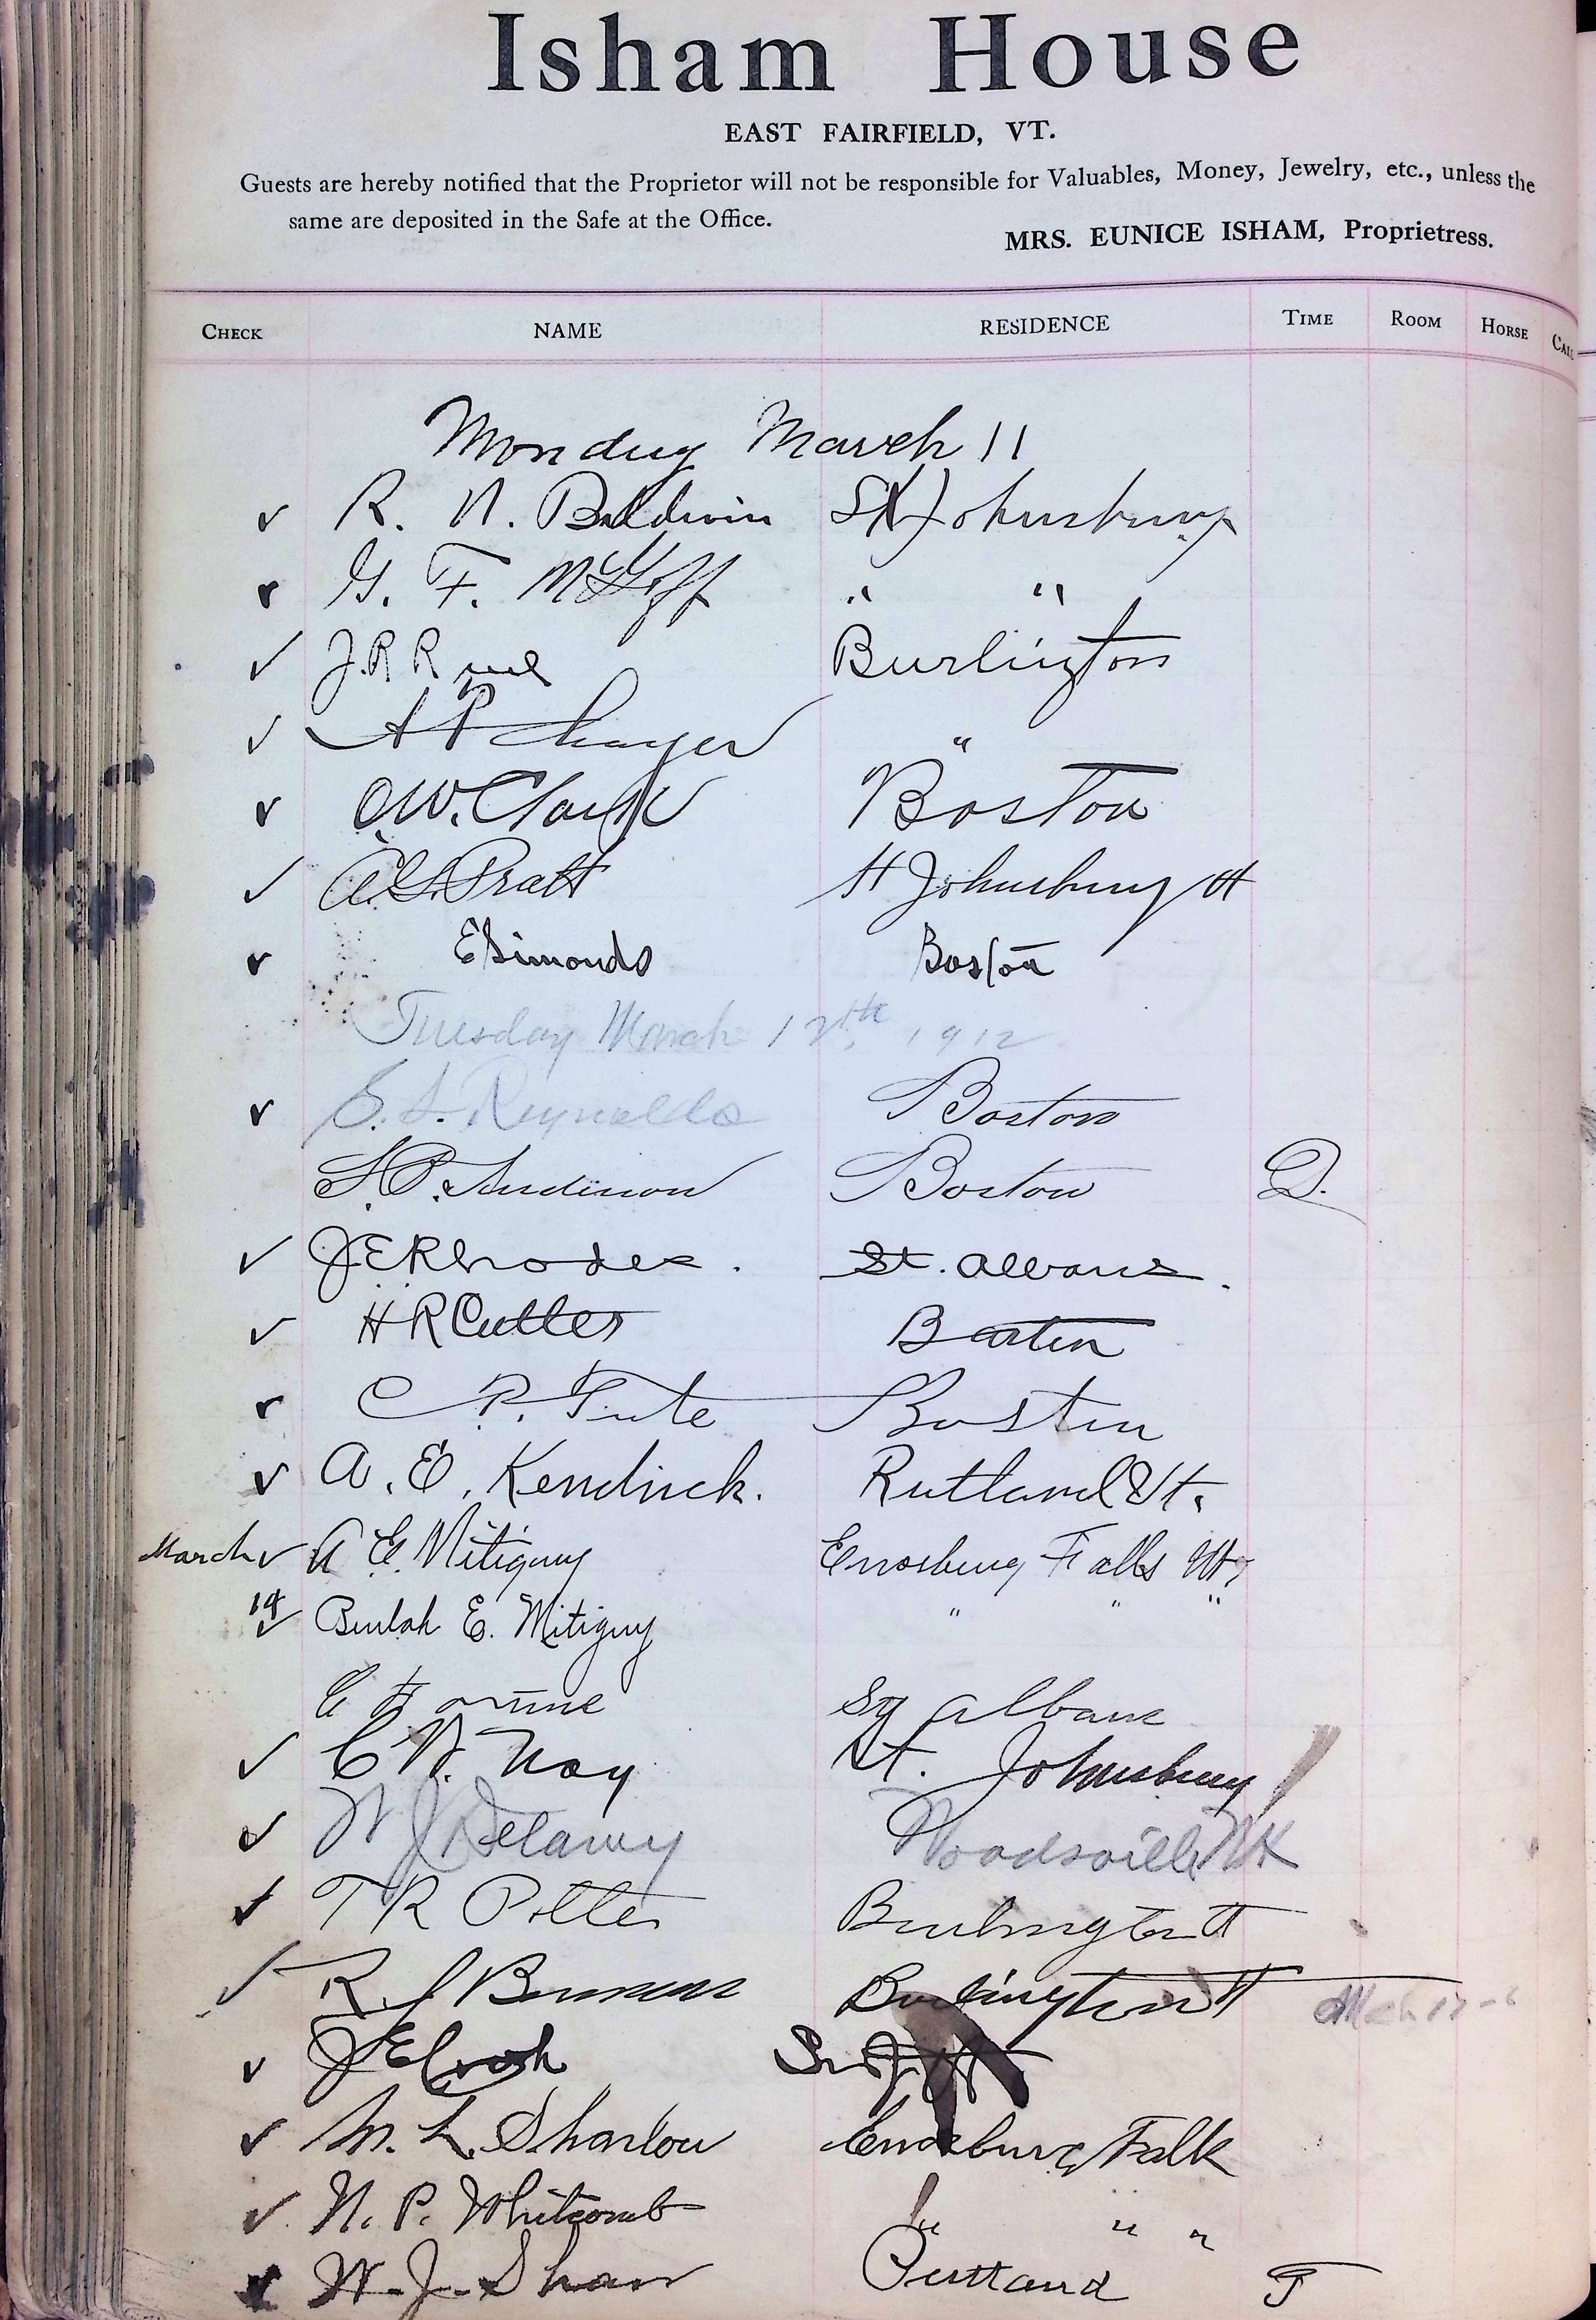 Isham House
EAST FAIRFIELD, VT.
Guests are hereby notified that the Proprietor will not be responsible for Valuables, Money, Jewelry, etc., unless the
same are deposited in the Safe at the Office.
MRS. EUNICE ISHAM, Proprietress.
CHECK NAME RESIDENCE TIME ROOM HORSE CALL
Monday March 11
R. N. Baldwin St Johnsbury
G. F. McGoff " "
J. R. Burlington
A P Thayer "
O.W. Clark Boston
A.G. Pratt St Johnsbury Vt
E Simonds Boston
Tuesday March 12th, 1912
E. S. Reynolds Boston
S. P. Anderson Boston D.
J E Rhodes. St. Albans.
H R Cutter Barton
C P. Tute Boston
A. E. Kendrick. Rutland Vt.
March A E. Mitiguy Enosburg Falls Vt,
14 Beulah E. Mitiguy " " "
St Albans
C N. Nay St. Johnsbury
W J Delaney Woodsville NH
T R Potter Burlington Vt
R J Burlington Vt
J E
M. L. Sharlow Enosburg Falls
N. P. Whitcomb " " "
W. J. Shaw Portland